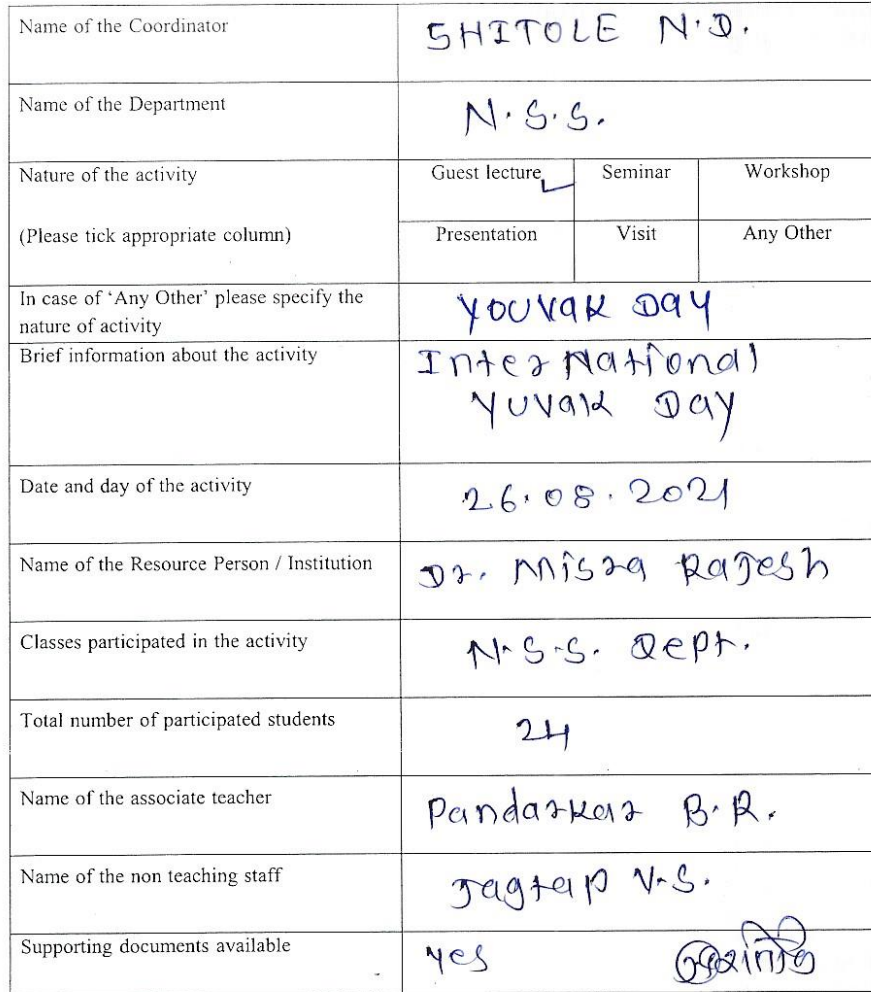 Name of the Coordinator
SHITOLE N.D.
Name of the Department
N.S.S.
Nature of the activity
Guest lecture ✓
Seminar
Workshop
(Please tick appropriate column)
Presentation
Visit
Any Other
In case of 'Any Other' please specify the
nature of activity
YOUVAK DAY
Brief information about the activity
InterNational
YUVAK DAY
Date and day of the activity
26.08.2021
Name of the Resource Person / Institution
Dr. Misra Rajesh
Classes participated in the activity
N.S.S. Dept.
Total number of participated students
24
Name of the associate teacher
Pandarkar B.R.
Name of the non teaching staff
Jagtap V.S.
Supporting documents available
yes